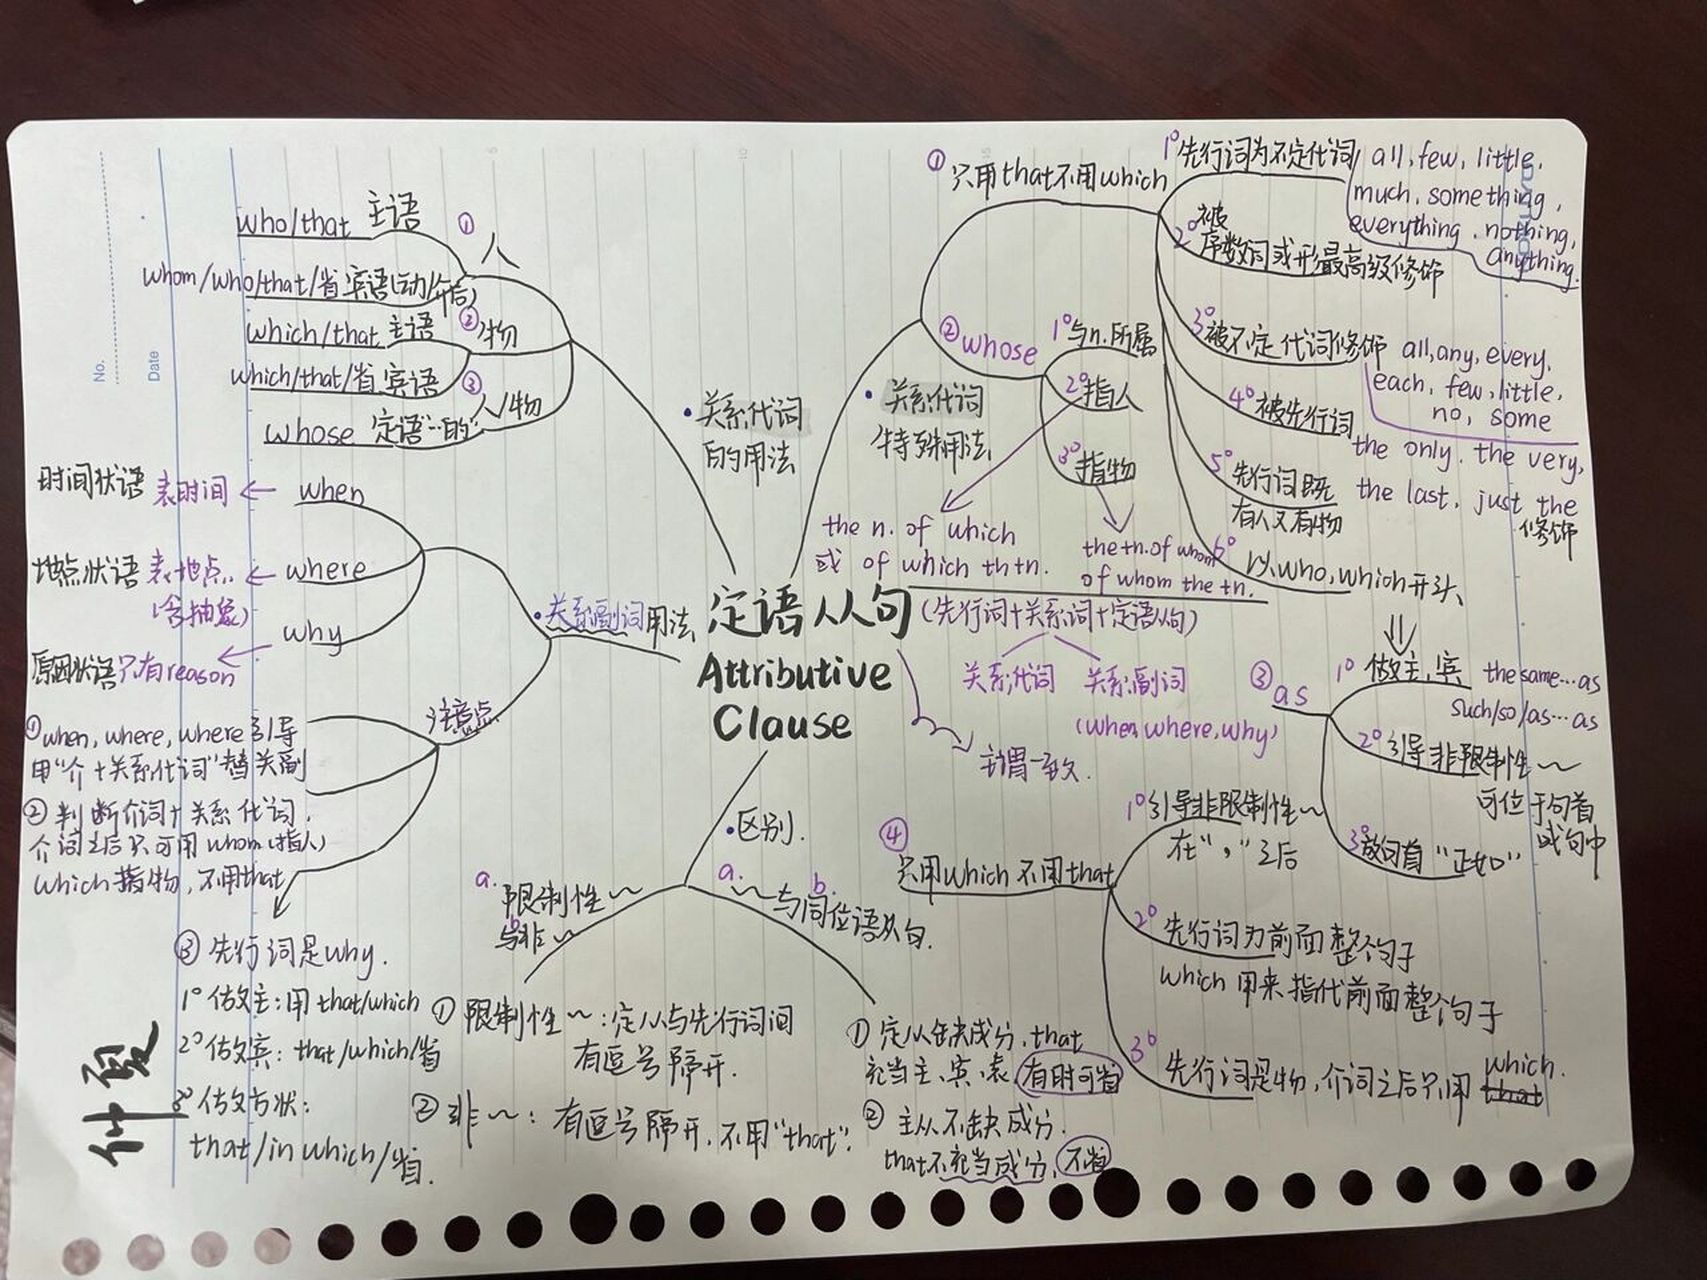 No.
Date
定语从句
(先行词+关系词+定语从句)
Attributive
Clause
关系代词 关系副词
(when, where, why)
主谓一致.
·关系代词
的用法
① 人
who/that 主语
whom/who/that/省 宾语(动/介后)
② 物
which/that 主语
which/that/省 宾语
③ 人/物
whose 定语"…的"
·关系副词用法
时间状语 表时间 ← when
地点状语 表地点 ← where
(含抽象)
why
原因状语 只有reason
注意点
①when, where, where 引导
用"介+关系代词"替关副
② 判断介词+关系代词,
介词之后只可用 whom (指人)
which 指物, 不用that
③ 先行词是way.
1° 做主:用 that/which
2° 做宾: that/which/省
3° 做方状:
that/in which/省.
什夏
·区别.
a. 限制性~
b 与非~
a. ~与 b. 同位语从句.
① 限制性~:定从与先行词间
有逗号隔开.
② 非~: 有逗号隔开, 不用"that".
① 定从缺成分, that
充当主、宾、表, 有时可省
② 主从不缺成分.
that不充当成分, 不省
·关系代词
特殊用法
① 只用that不用which
1° 先行词为不定代词 all, few, little,
much, something,
everything, nothing,
anything.
2° 被
序数词或形最高级修饰
3° 被不定代词修饰 all, any, every,
each, few, little,
no, some
4° 被先行词 the only. the very,
the last, just the
修饰
5° 先行词既
有人又有物
6° 以who, which开头
② whose
1° 与n.所属
2° 指人
3° 指物
the n. of which
或 of which th+n.
the+n. of whom
of whom the +n.
③ as
1° 做主,宾 the same…as
such/so/as…as
2° 引导非限制性~
可位于句首
或句中
3° 放句首 "正如"
④
只用which 不用that
1° 引导非限制性~
在","之后
2° 先行词为前面整个句子
which 用来指代前面整个句子
3° 先行词是物, 介词之后只用 which.
that